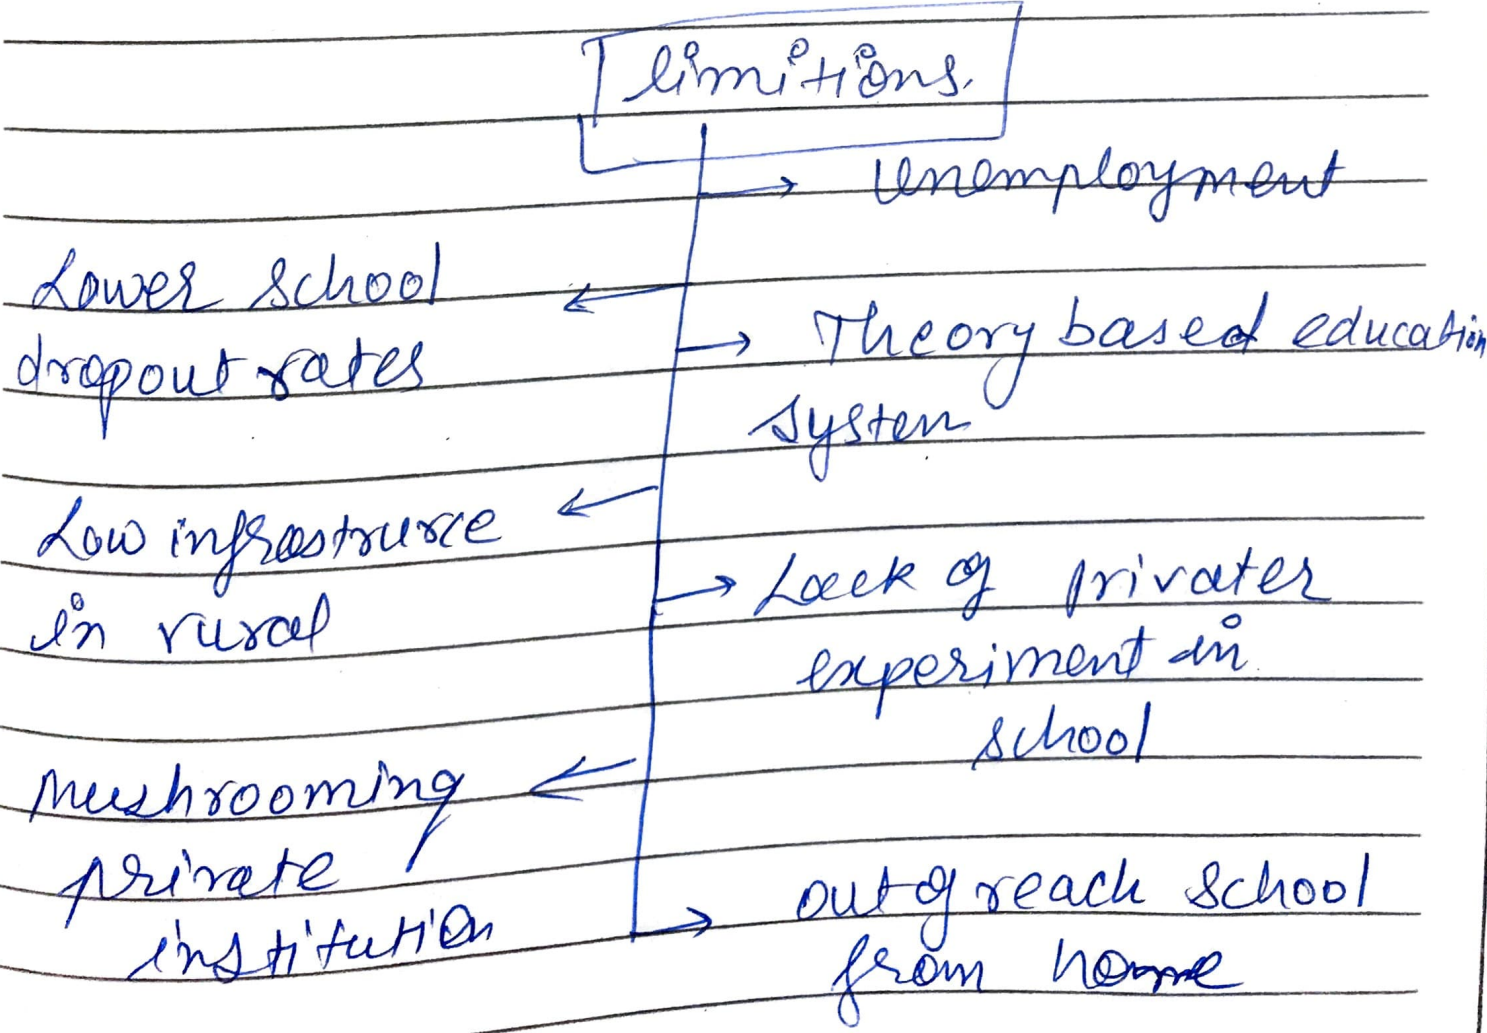 limitions.
Unemployment
Lower school
dropout rates
Theory based education
system
Low infrastruce
in rural
Lack of privater
experiment in
school
Mushrooming
private
institution
out of reach school
from home